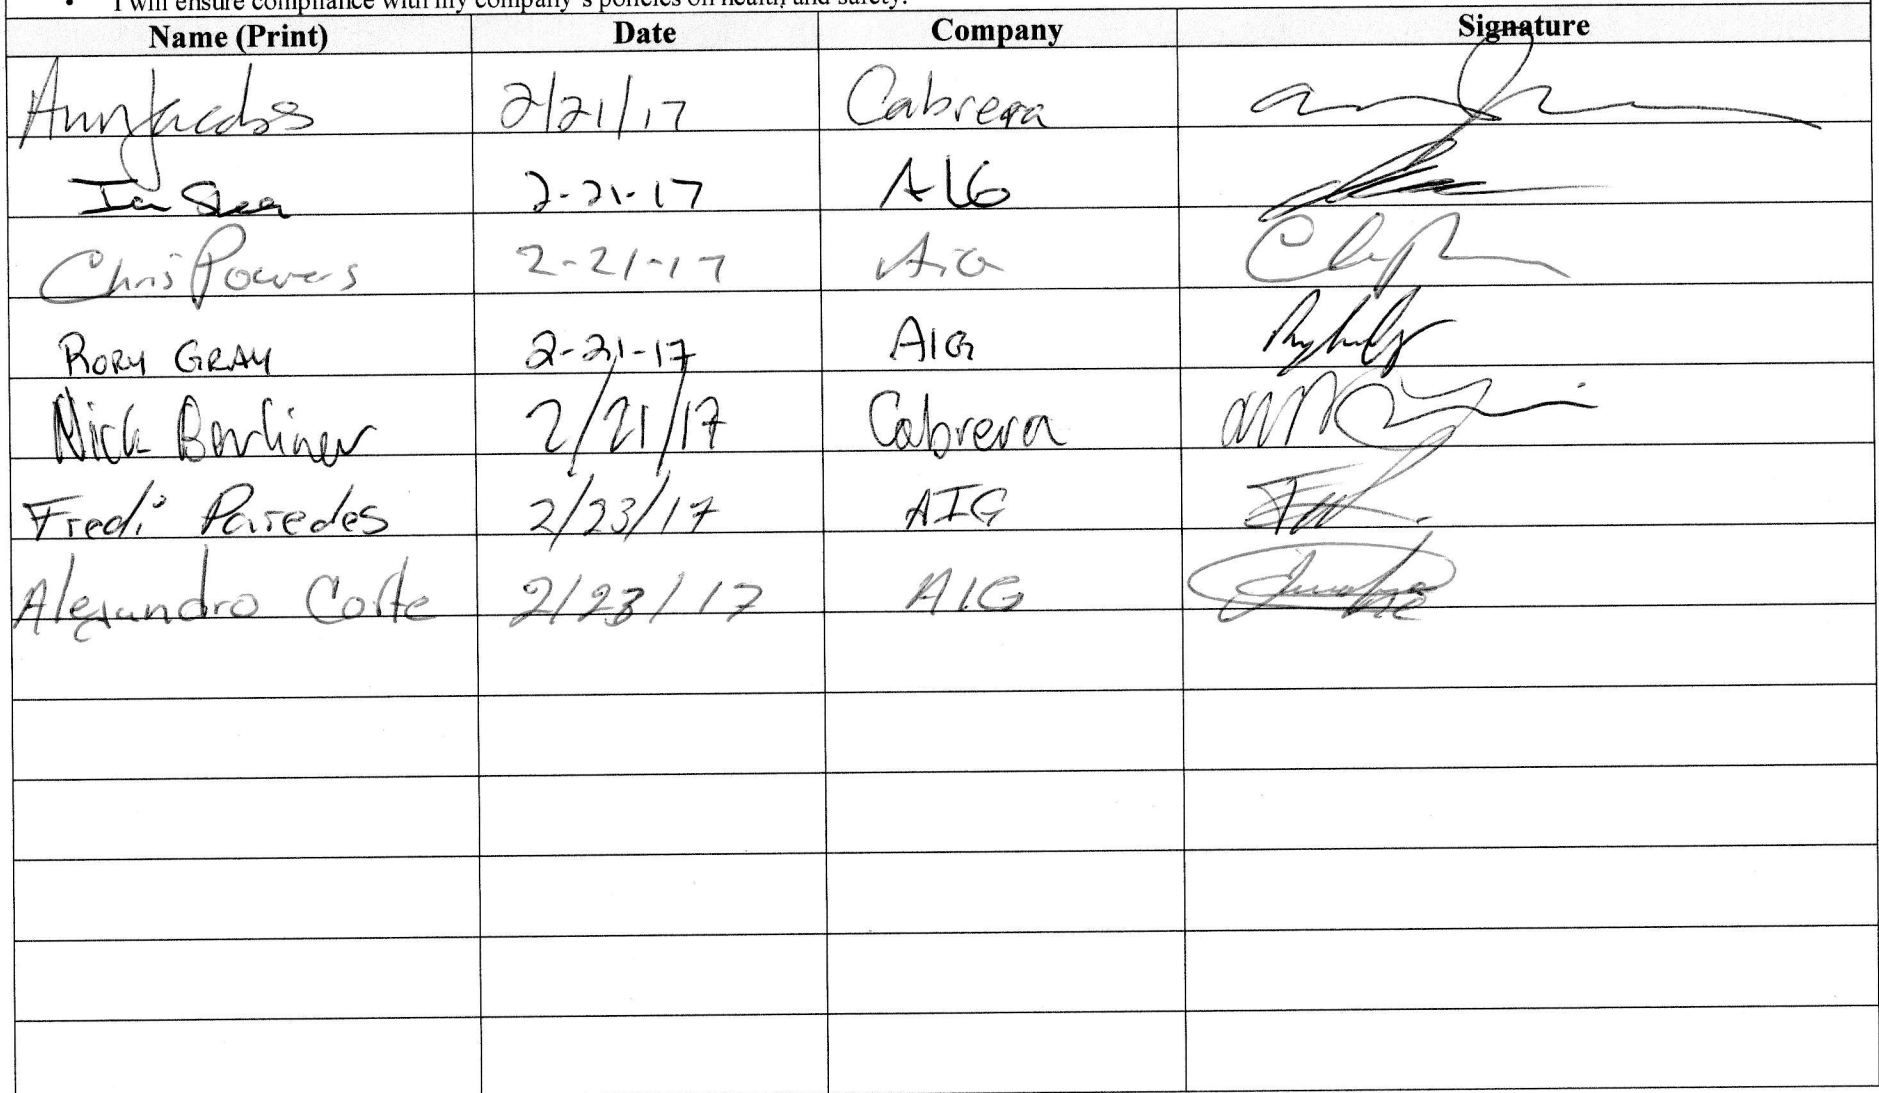 • I will ensure compliance with my company's policies on health and safety.
Name (Print) Date Company Signature
Ann Jacobs 2/21/17 Cabrera
Ian 2-21-17 AIG
Chris Powers 2-21-17 AiG
RORY GRAY 2-21-17 AIG
Nick Berliner 2/21/17 Cabrera
Fredi Paredes 2/23/17 AIG
Alejandro Corte 2/23/17 AIG